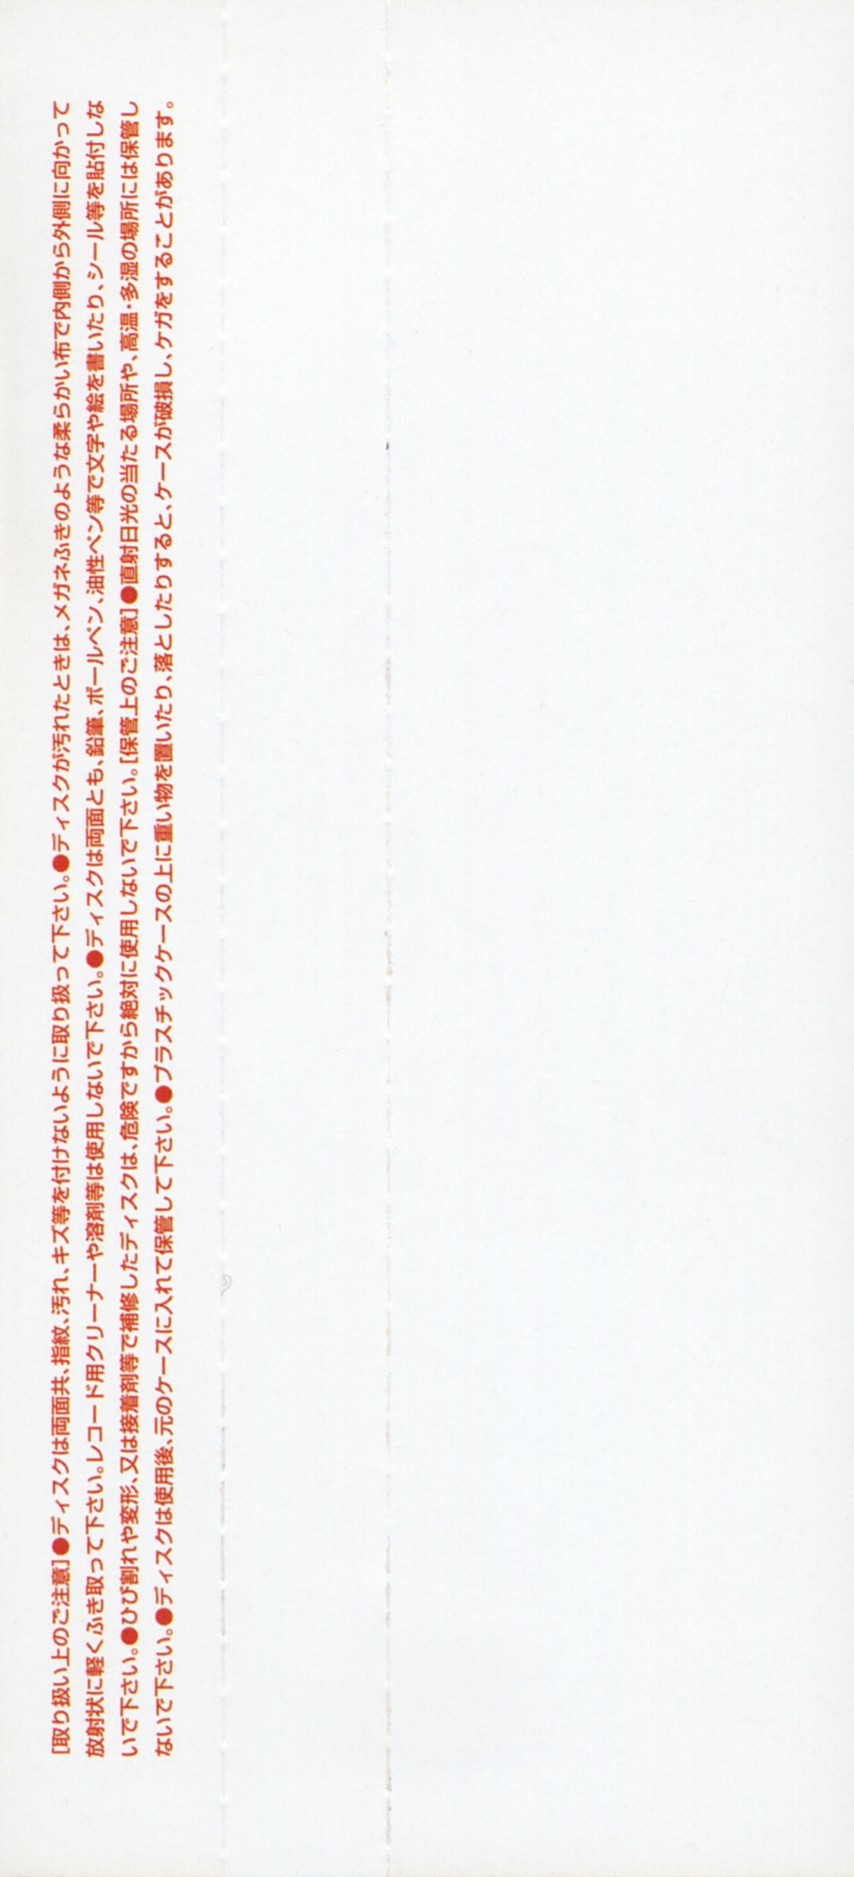 [取り扱い上のご注意]●ディスクは両面共、指紋、汚れ、キズ等を付けないように取り扱って下さい。●ディスクが汚れたときは、メガネふきのような柔らかい布で内側から外側に向かって
放射状に軽くふき取って下さい。レコード用クリーナーや溶剤等は使用しないで下さい。●ディスクは両面とも、鉛筆、ボールペン、油性ペン等で文字や絵を書いたり、シール等を貼付しな
いで下さい。●ひび割れや変形、又は接着剤等で補修したディスクは、危険ですから絶対に使用しないで下さい。[保管上のご注意]●直射日光の当たる場所や、高温・多湿の場所には保管し
ないで下さい。●ディスクは使用後、元のケースに入れて保管して下さい。●プラスチックケースの上に重い物を置いたり、落としたりすると、ケースが破損し、ケガをすることがあります。